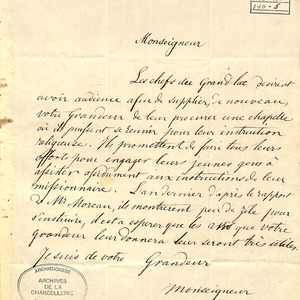 840-5
Monseigneur
Les chefs du Grand lac désirent
avoir audience afin de supplier, de nouveau,
votre Grandeur de leur procurer une chapelle
où ils puissent se réunir pour leur instruction
religieuse. Ils promettent de faire tous leurs
efforts pour engager leurs jeunes gens à
assister assidument aux instructions de leur
missionnaire. L'an dernier d'après le rapport
d. Mr. Moreau, ils montrèrent peu de zèle pour
s'instruire, il est à espérer que les avis que votre
grandeur leur donnera leur seront très utiles.
Je suis de votre Grandeur
Monseigneur
ARCHIDIOCESE
ARCHIVES
DE LA
CHANCELLERIE